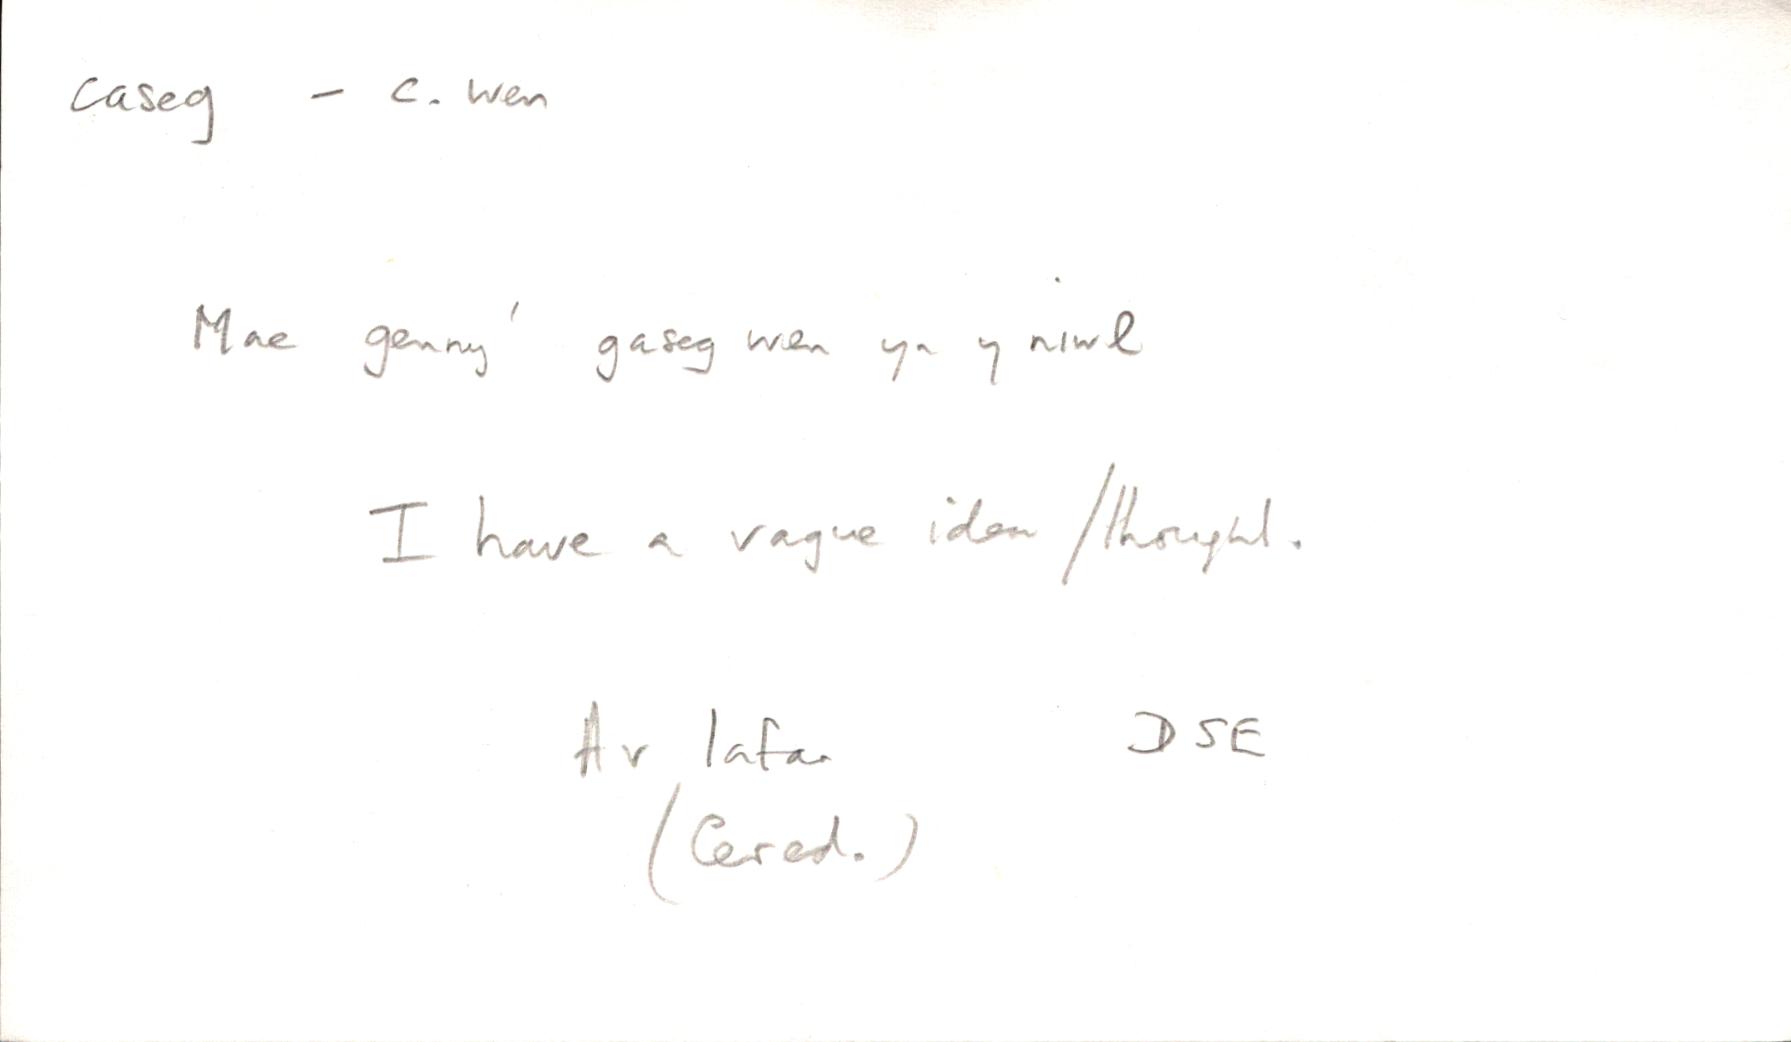 caseg - c. wen
Mae genny' gaseg wen yn y niwl
I have a vague idea/thought.
Ar lafar DSE
(Cered.)